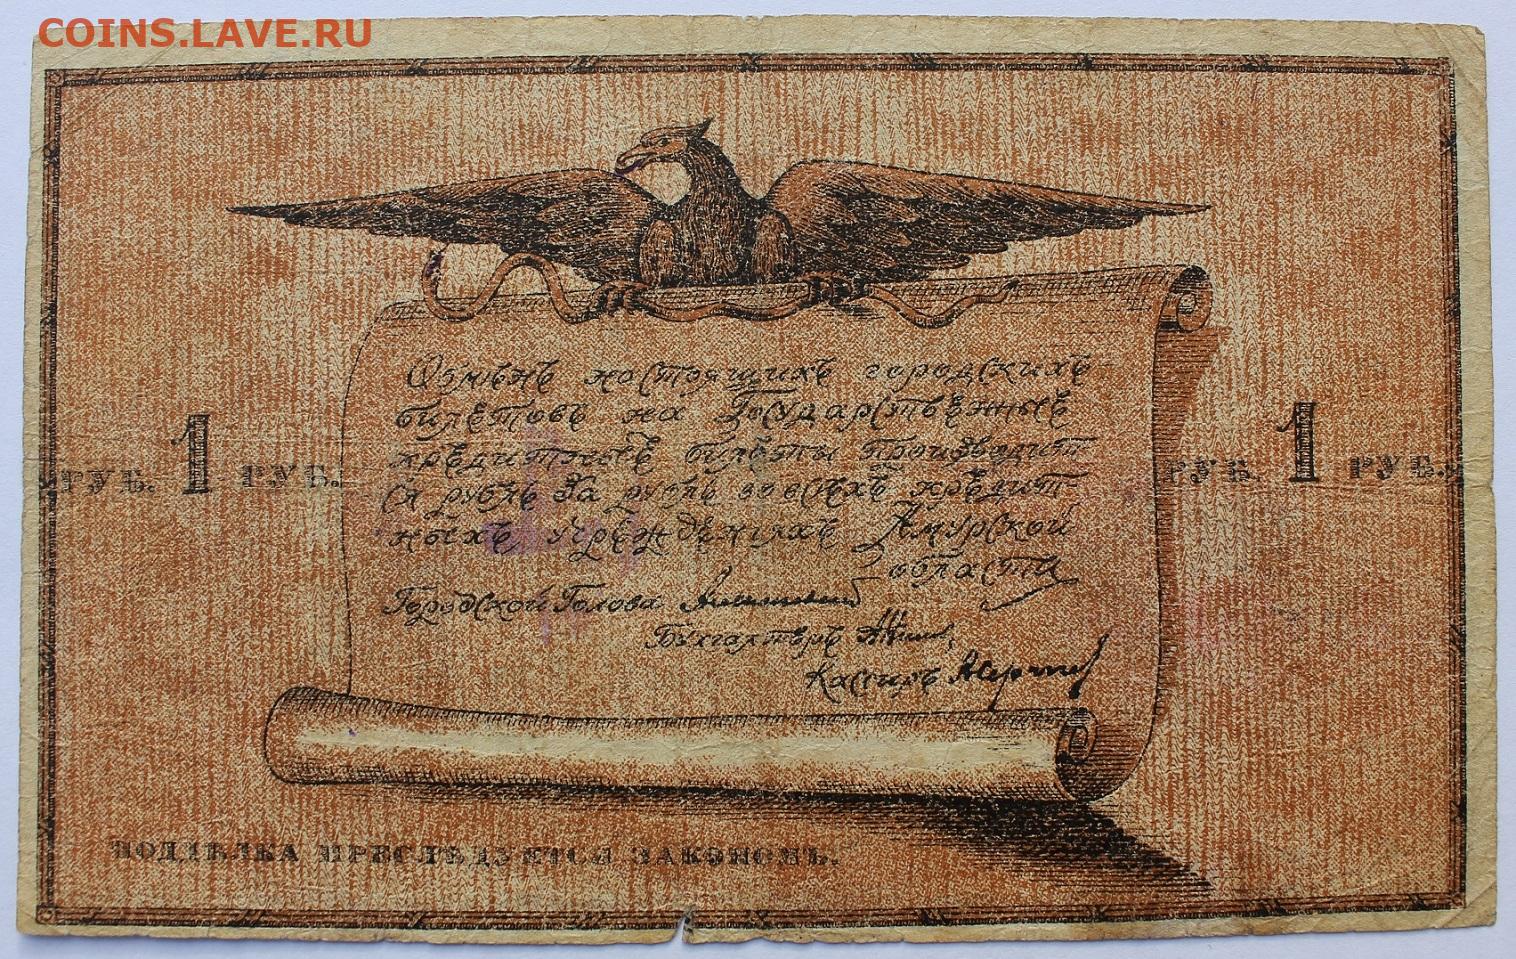 COINS.LAVE.RU
Обмѣнъ настоящихъ городскихъ
билетовъ на Государственные
кредитные билеты производит
ся рубль за рубль во всѣхъ кредит
ныхъ учрежденіяхъ Амурской
области
РУБ. 1 РУБ.
РУБ. 1 РУБ.
Городской Голова
Бухгалтеръ
Кассиръ
ПОДДѢЛКА ПРЕСЛѢДУЕТСЯ ЗАКОНОМЪ.